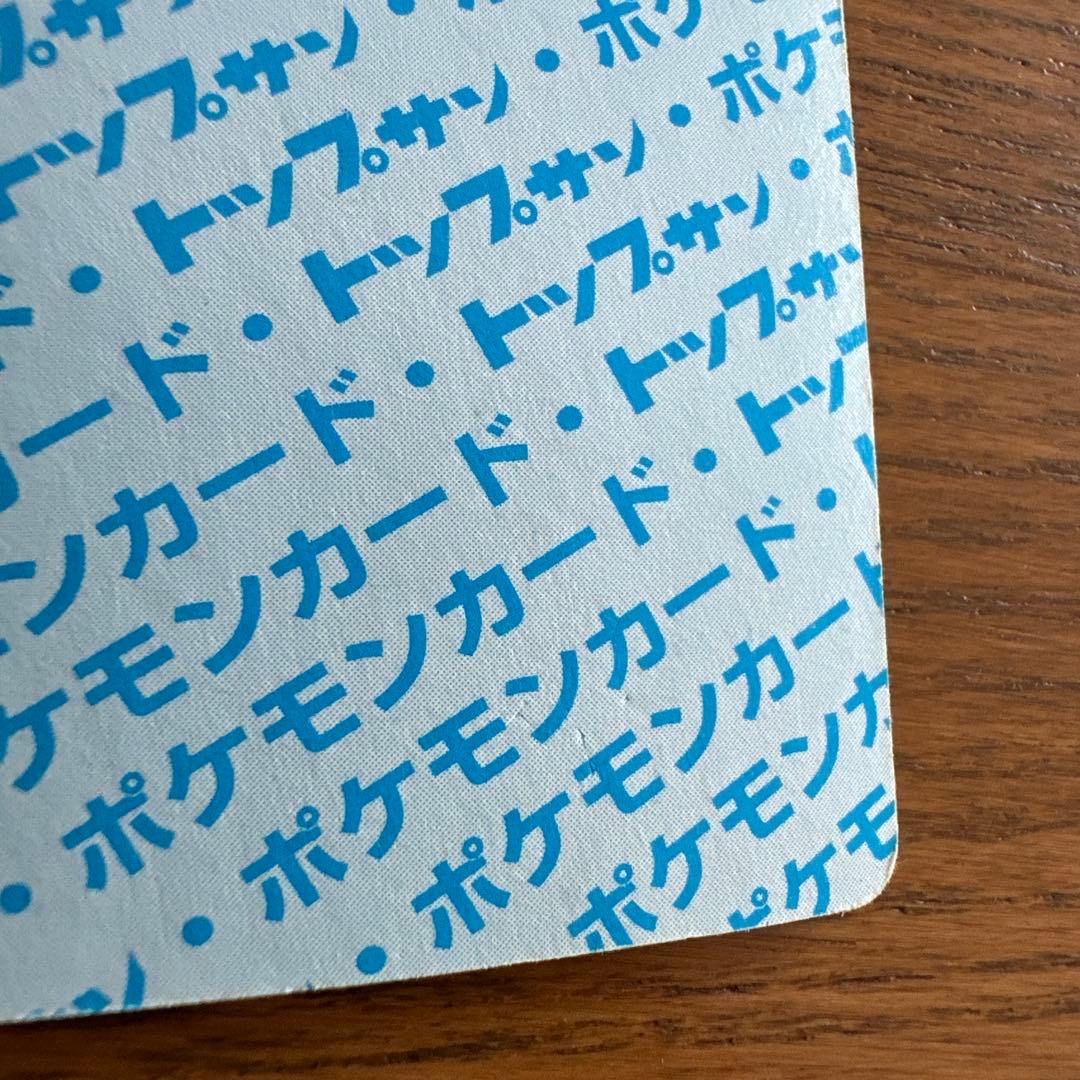 プサ
トップサン・
ド・トップサン・ポケ
ード・トップサン・ポケ
ンカード・トップサン・
ケモンカード・トップサン
・ポケモンカード・トップ
ン・ポケモンカード・
・ポケモンカード
ポケモンカ
ポケモ